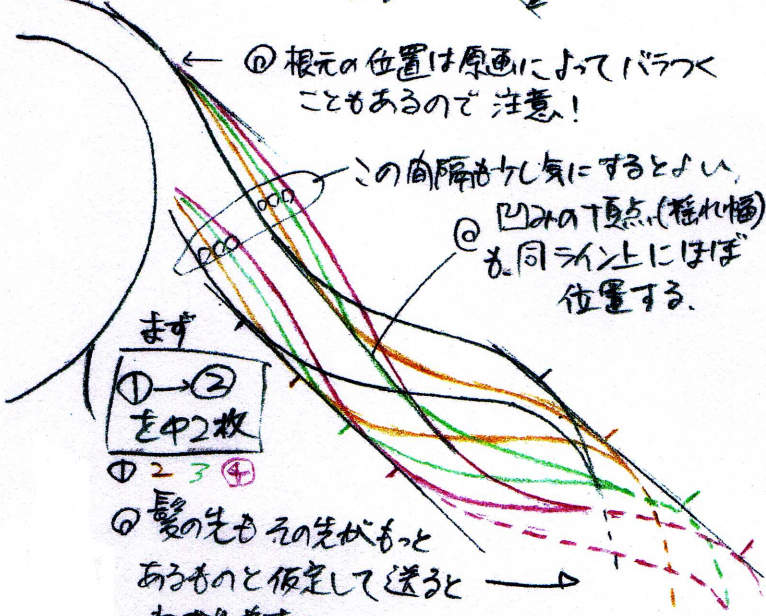 ← ◎ 根元の位置は原画によってバラつく
こともあるので 注意!
この間隔も少し気にするとよい、
◎ 凹みの頂点(揺れ幅)
も同ライン上にほぼ
位置する.
まず
①→②
を中2枚
① 2 3 ④
◎ 髪の先も その先がもっと
あるものと仮定して送ると